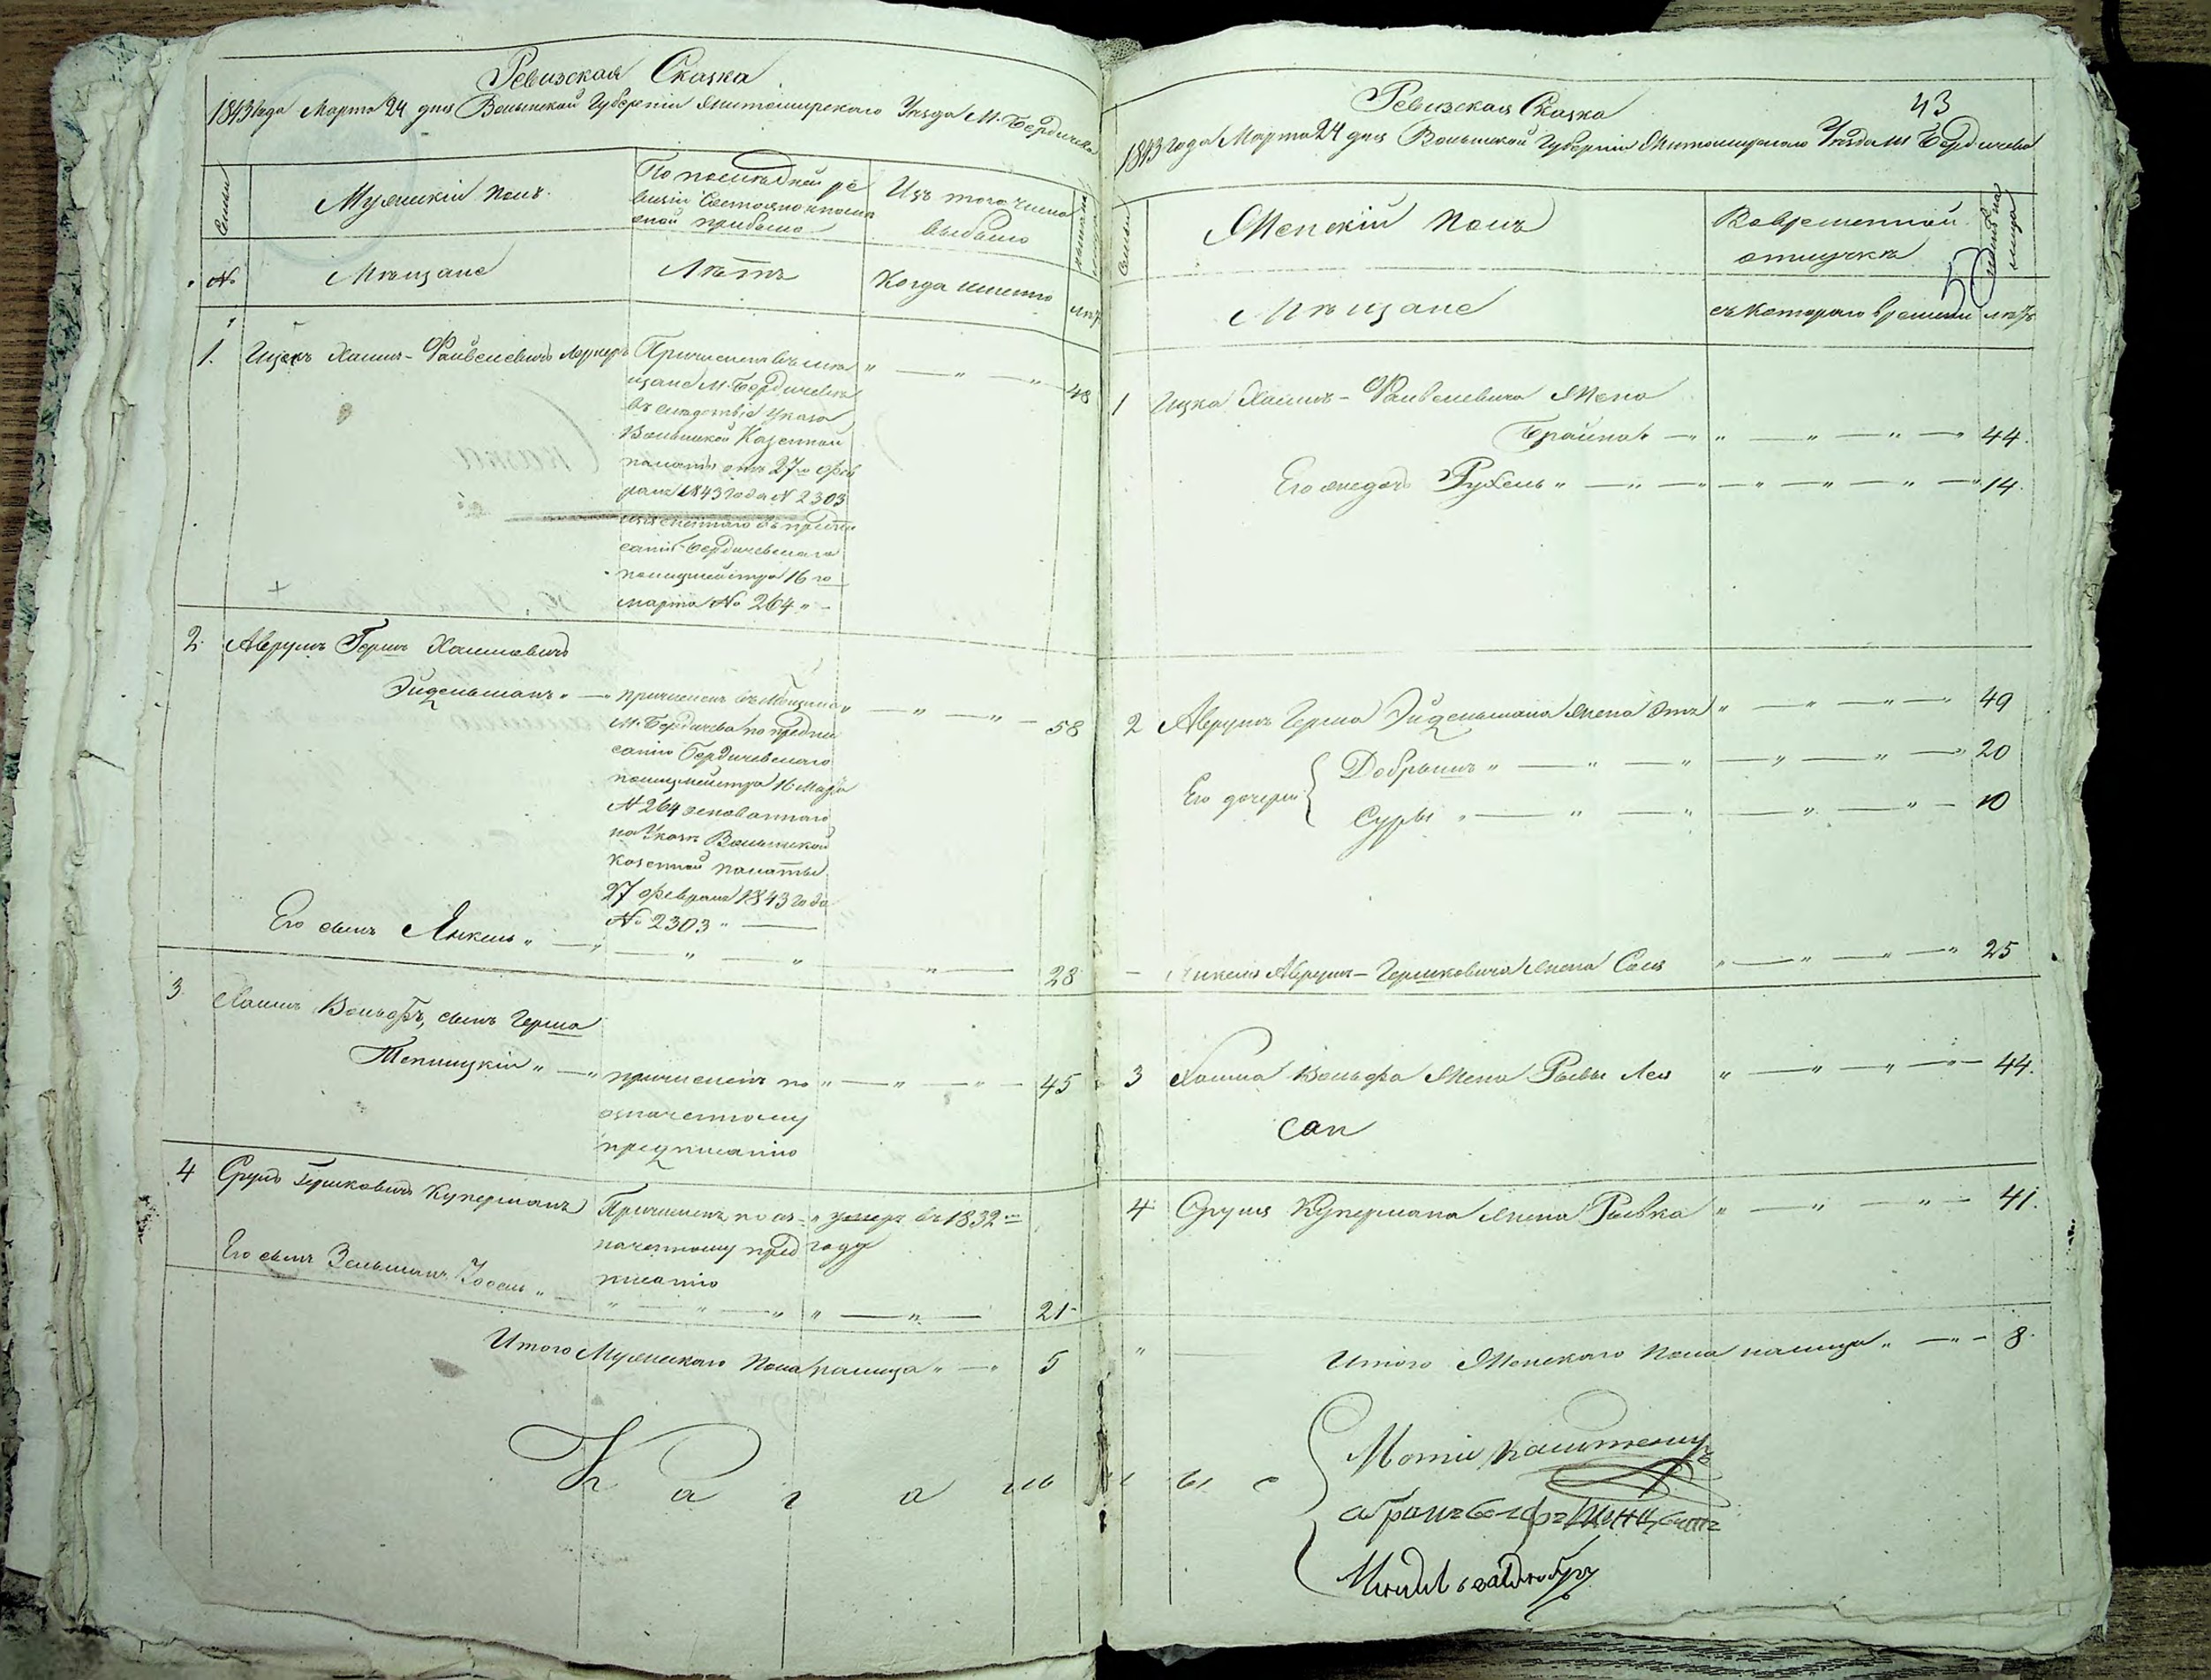 Ревизская Сказка
1843 года Марта 24 дня Волынской Губернии Житомирского Уезда М. Бердичева
Семьи
Мужский полъ.
По последней ре
визии состояло и после
оной прибыло
Изъ того числа
выбыло
№
Мещане
Летъ
Когда именно
летъ
1. Ицекъ Хаимъ-Файвелевичъ Лернеръ
Причисленъ въ ме
щане М. Бердичева
въ следствіе указа
Волынской Казенной
палаты отъ 27го фев
раля 1843 года № 2303
изъясненнаго въ предпи
саніи Бердичевскаго
полицмейстра 16го
марта № 264 „ —
48
2. Аврумъ Гершъ Хаимовичъ
Эйдельманъ „ —
причисленъ въ мещане
М. Бердичева по предпи
санію Бердичевскаго
полицмейстра 16 Мар.
№ 264 основаннаго
на Указе Волынской
казенной палаты
27 февраля 1843 года
№ 2303 „ —
58
Его сынъ Янкель „ — 28
3. Хаимъ Вольфъ, сынъ Герша
Теплицкій „ —
причисленъ по
означенному
предписанію
45
4 Срулъ Гершковичъ Куперманъ
Причисленъ по оз-
наченному пред
писанію
умеръ въ 1832мъ
году
Его сынъ Зельманъ Іосель „ 21
Итого Мужескаго пола налицо „ — „ 5
Кагальные
Ревизская Сказка
43
1843 года Марта 24 дня Волынской Губерніи Житомирскаго Уезда М. Бердичева
Семьи
Женскій полъ
Во временной
отлучке
ныне на
лицо
50
Мещане
съ котораго времени
летъ
1 Ицка Хаимъ-Файвелевича Жена
Брайна — „ 44.
Его дочь Рухель „ — 14.
2 Аврумъ Герша Эйдельмана жена Этя „ — 49
Его дочери
Добрышъ „ — 20
Суры „ — 10
Янкеля Аврумъ-Гершковича жена Сося „ — 25
3 Хаима Вольфа жена Рывы Лея „ — 44.
4 Срулия Купермана жена Рывка „ — 41.
Итого Женскаго пола налицо „ — 8.